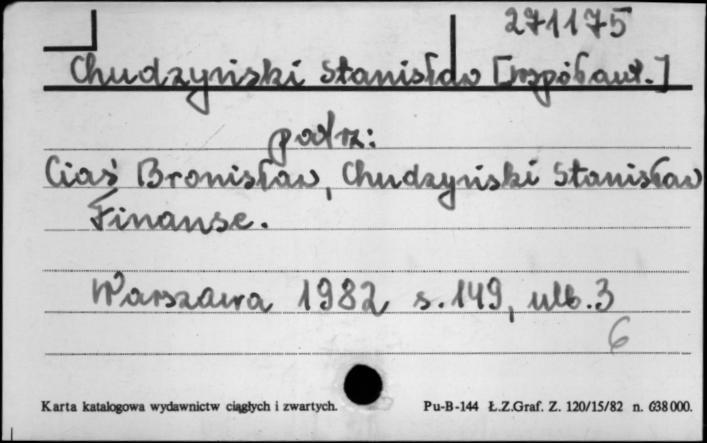 271175
Chudzyński Stanisław [współaut.]
patrz:
Ciaś Bronisław, Chudzyński Stanisław
Finanse.
Warszawa 1982 s. 149, ulb. 3
6
Karta katalogowa wydawnictw ciągłych i zwartych. Pu-B-144 Ł.Z.Graf. Z. 120/15/82 n. 638000.